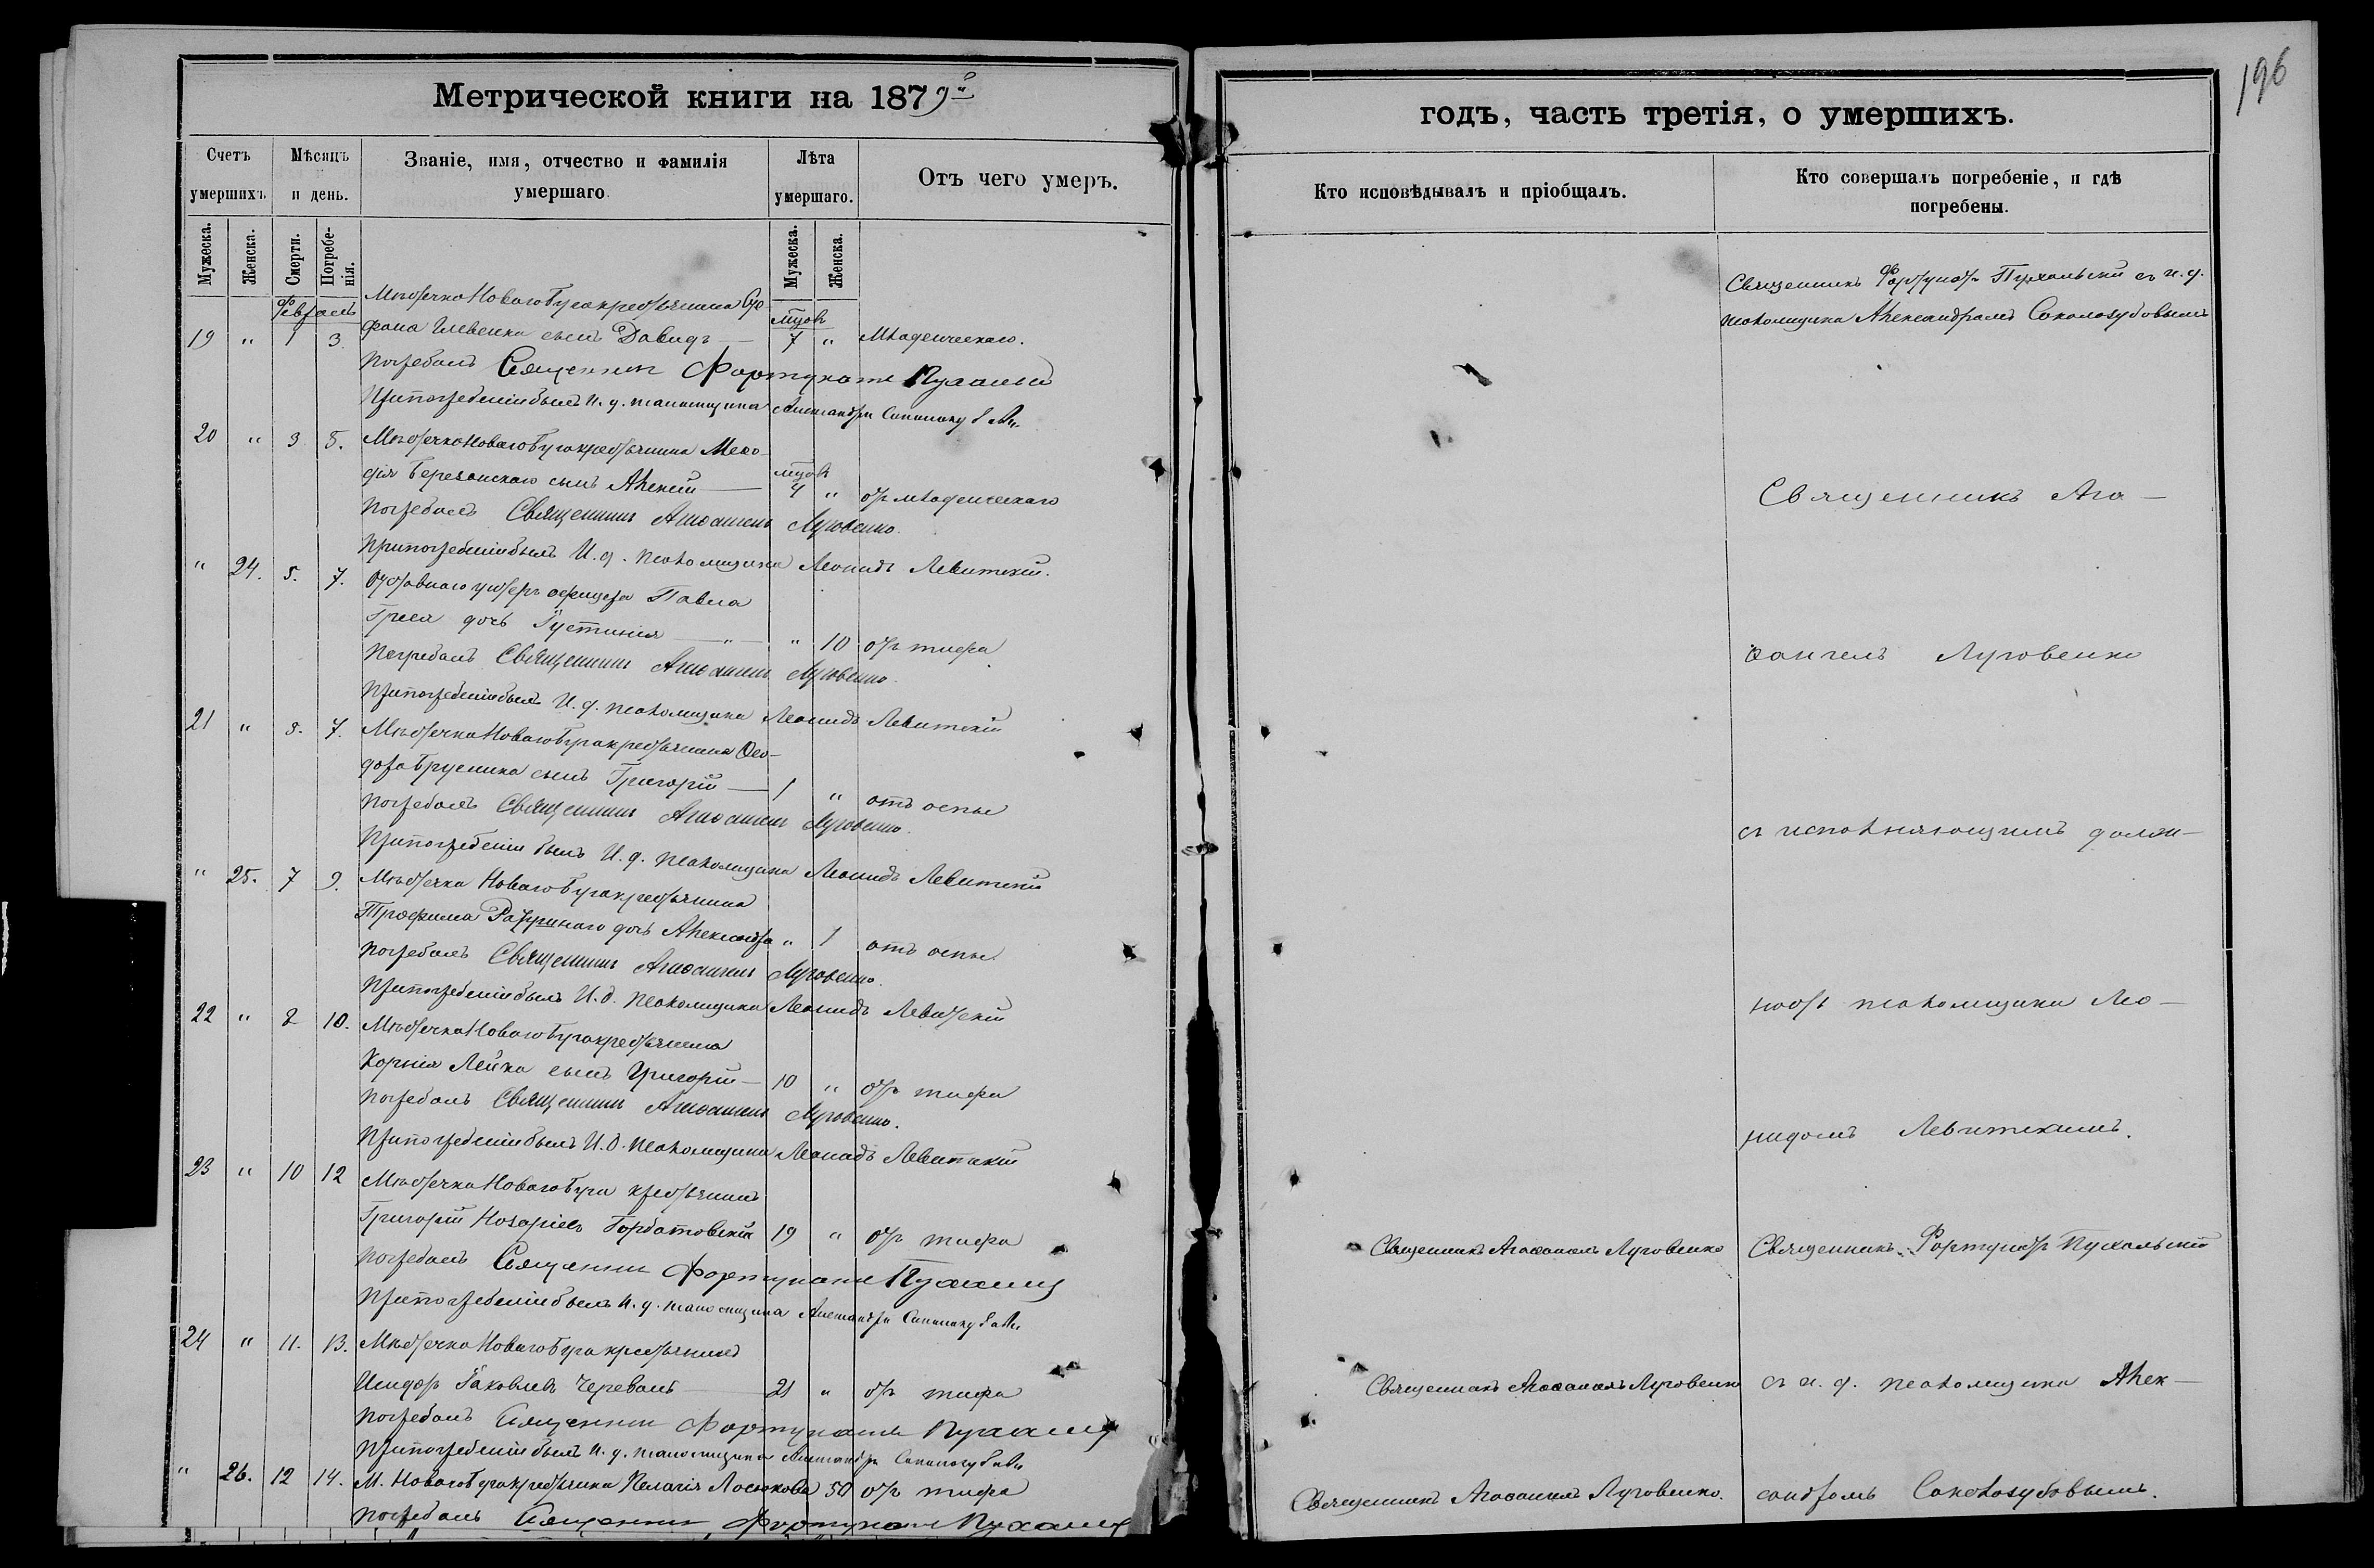 196
Метрической книги на 1879й
годъ, часть третія, о умершихъ.
Счетъ умершихъ.
Мѣсяцъ и день.
Званіе, имя, отчество и фамилія умершаго.
Лѣта умершаго.
Отъ чего умеръ.
Кто исповѣдывалъ и пріобщалъ.
Кто совершалъ погребеніе, и гдѣ погребены.
Мужеска. Женска. Смерти. Погребенія. Мужеска. Женска.
Февраль
Мѣстечка Новаго Буга крестьянина
19 " 1 3 сынъ Давидъ — мцов 7 " Младенческаго.
Погребалъ Священникъ Фортунатъ Пухальскій
При погребеніи былъ и. д. псаломщика Александръ
20 " 3 5. Мѣстечка Новаго Буга крестьянина Меѳо-
дія Березанскаго сынъ Алексій — мцов 4 " отъ младенческаго
Погребалъ Священникъ Агаѳангелъ Луговенко.
При погребеніи былъ И. д. псаломщика Леонидъ Левитскій.
" 24. 5. 7. Отставнаго унтеръ офицера Павла
дочь Іустинія — " — " 10 отъ тифа
Погребалъ Священникъ Агаѳангелъ Луговенко.
При погребеніи былъ И. д. псаломщика Леонидъ Левитскій
21 " 5. 7. Мѣстечка Новаго Буга крестьянина Ѳео-
дора сынъ Григорій — 1 " отъ оспы
Погребалъ Священникъ Агаѳангелъ Луговенко.
При погребеніи былъ И. д. псаломщика Леонидъ Левитскій
" 25. 7 9. Мѣстечка Новаго Буга крестьянина
Трофима дочь Александра " 1 отъ оспы
Погребалъ Священникъ Агаѳангелъ Луговенко.
При погребеніи былъ И. д. псаломщика Леонидъ Левитскій
22 " 8 10. Мѣстечка Новаго Буга крестьянина
Корнія Лейка сынъ Григорій — 10 " отъ тифа
Погребалъ Священникъ Агаѳангелъ Луговенко.
При погребеніи былъ И. д. псаломщика Леонидъ Левитскій
23 " 10 12 Мѣстечка Новаго Буга крестьянинъ
Григорій Горбатовскій 19 " отъ тифа
Погребалъ Священникъ Фортунатъ Пухальскій
При погребеніи былъ и. д. псаломщика Александръ
24 " 11. 13. Мѣстечка Новаго Буга крестьянинъ
Исидоръ Яковлевъ 21 " отъ тифа
Погребалъ Священникъ Фортунатъ Пухальскій
При погребеніи былъ и. д. псаломщика Александръ
" 26. 12 14. М. Новаго Буга крестьянка Пелагія 50 отъ тифа
Погребалъ Священникъ Фортунатъ Пухальскій
Священникъ Фортунатъ Пухальскій съ и. д.
псаломщика Александромъ Соколозубовымъ
Священникъ Ага—
ѳангелъ Луговенко
съ исполняющимъ долж—
ность псаломщика Лео—
нидомъ Левитскимъ.
Священникъ Агаѳангелъ Луговенко Священникъ Фортунатъ Пухальскій
Священникъ Агаѳангелъ Луговенко съ и. д. псаломщика Алек—
Священникъ Агаѳангелъ Луговенко. сандромъ Соколозубовымъ.